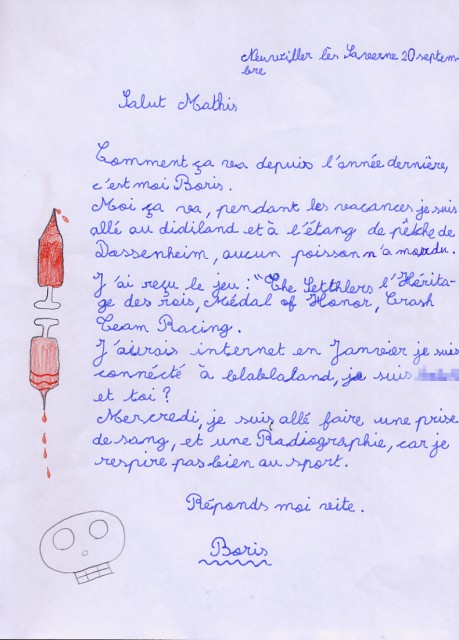 Neuwiller lès Saverne 20 septem-
bre
Salut Mathis
Comment ça va depuis l'année dernière,
c'est moi Boris.
Moi ça va, pendant les vacances je suis
allé au didiland et à l'étang de pêche de
Dossenheim, aucun poisson n'a mordu.
J'ai reçu le jeu : "The Setthlers l'Hérita-
ge des rois, Médal of Honor, Crash
Team Racing.
J'aurais internet en Janvier je suis
connécté à blablaland, je suis
et toi ?
Mercredi, je suis allé faire une prise
de sang, et une Radiographie, car je
respire pas bien au sport.
Réponds moi vite.
Boris